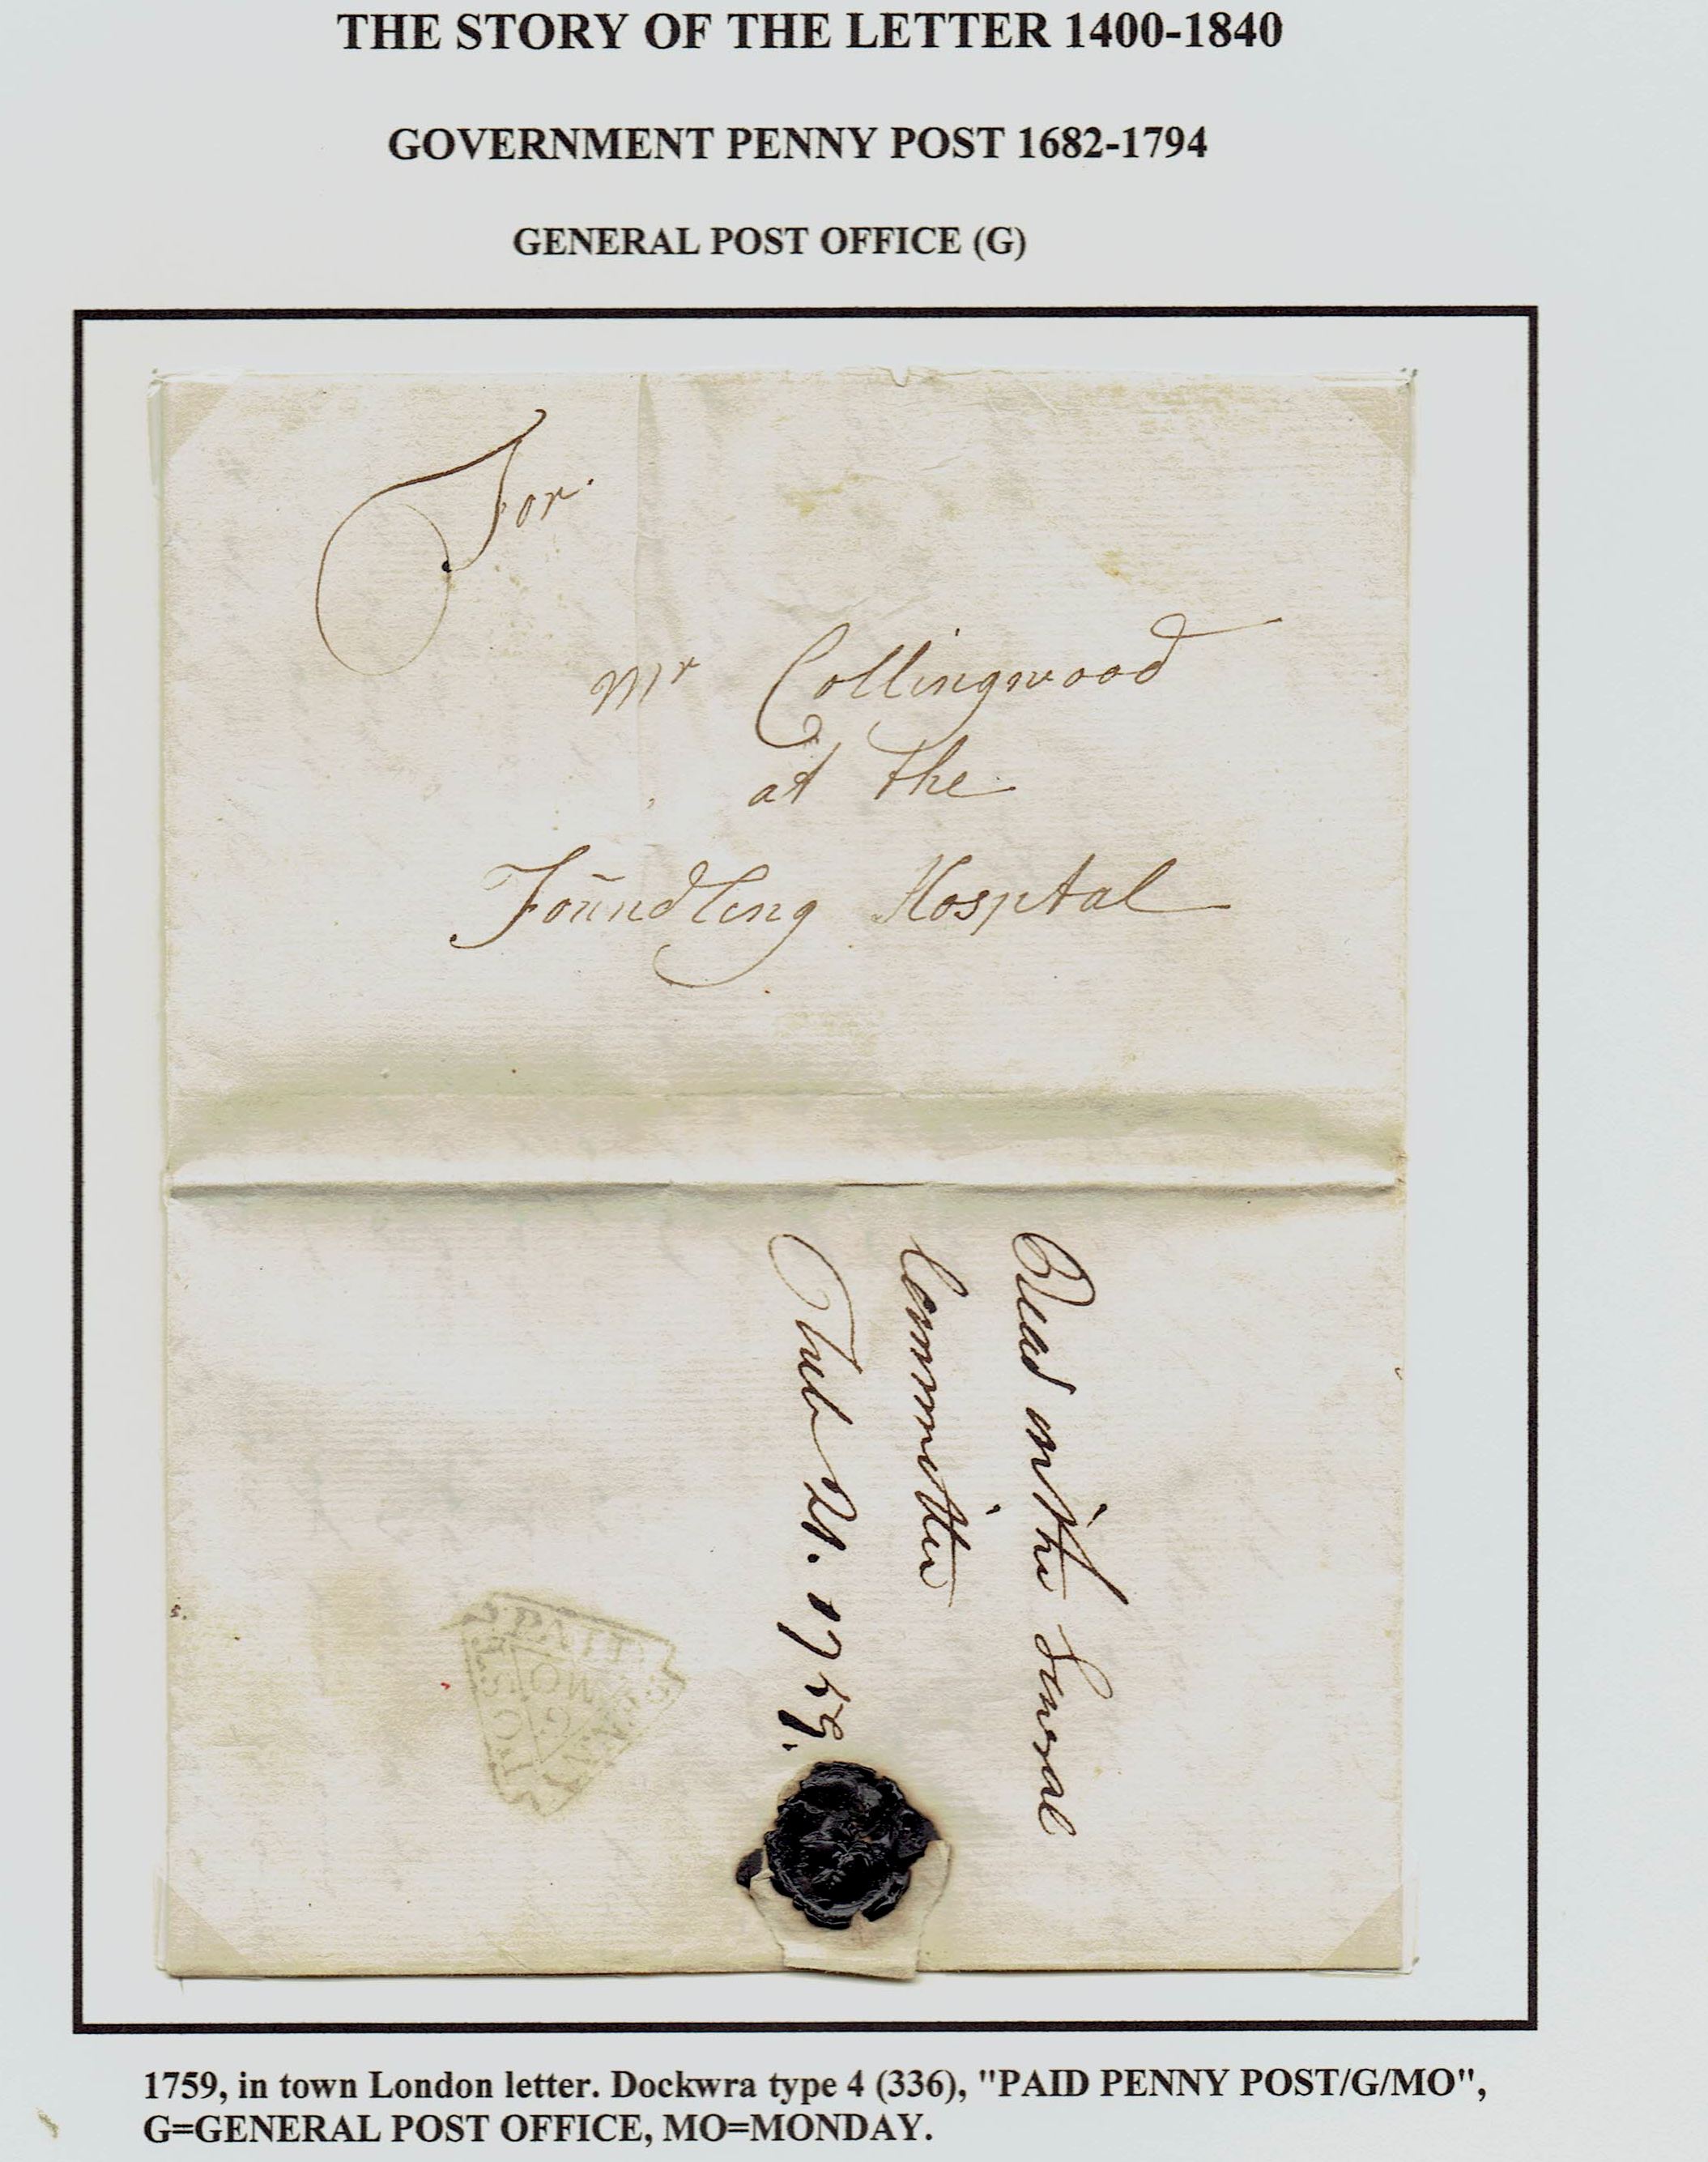 THE STORY OF THE LETTER 1400-1840
GOVERNMENT PENNY POST 1682-1794
GENERAL POST OFFICE (G)
For
Mr Collingwood
at the
Foundling Hosptal
Read in the General
Committee
Feb 21. 1759.
PAID
PENNY
POST
MO
G
1759, in town London letter. Dockwra type 4 (336), "PAID PENNY POST/G/MO",
G=GENERAL POST OFFICE, MO=MONDAY.